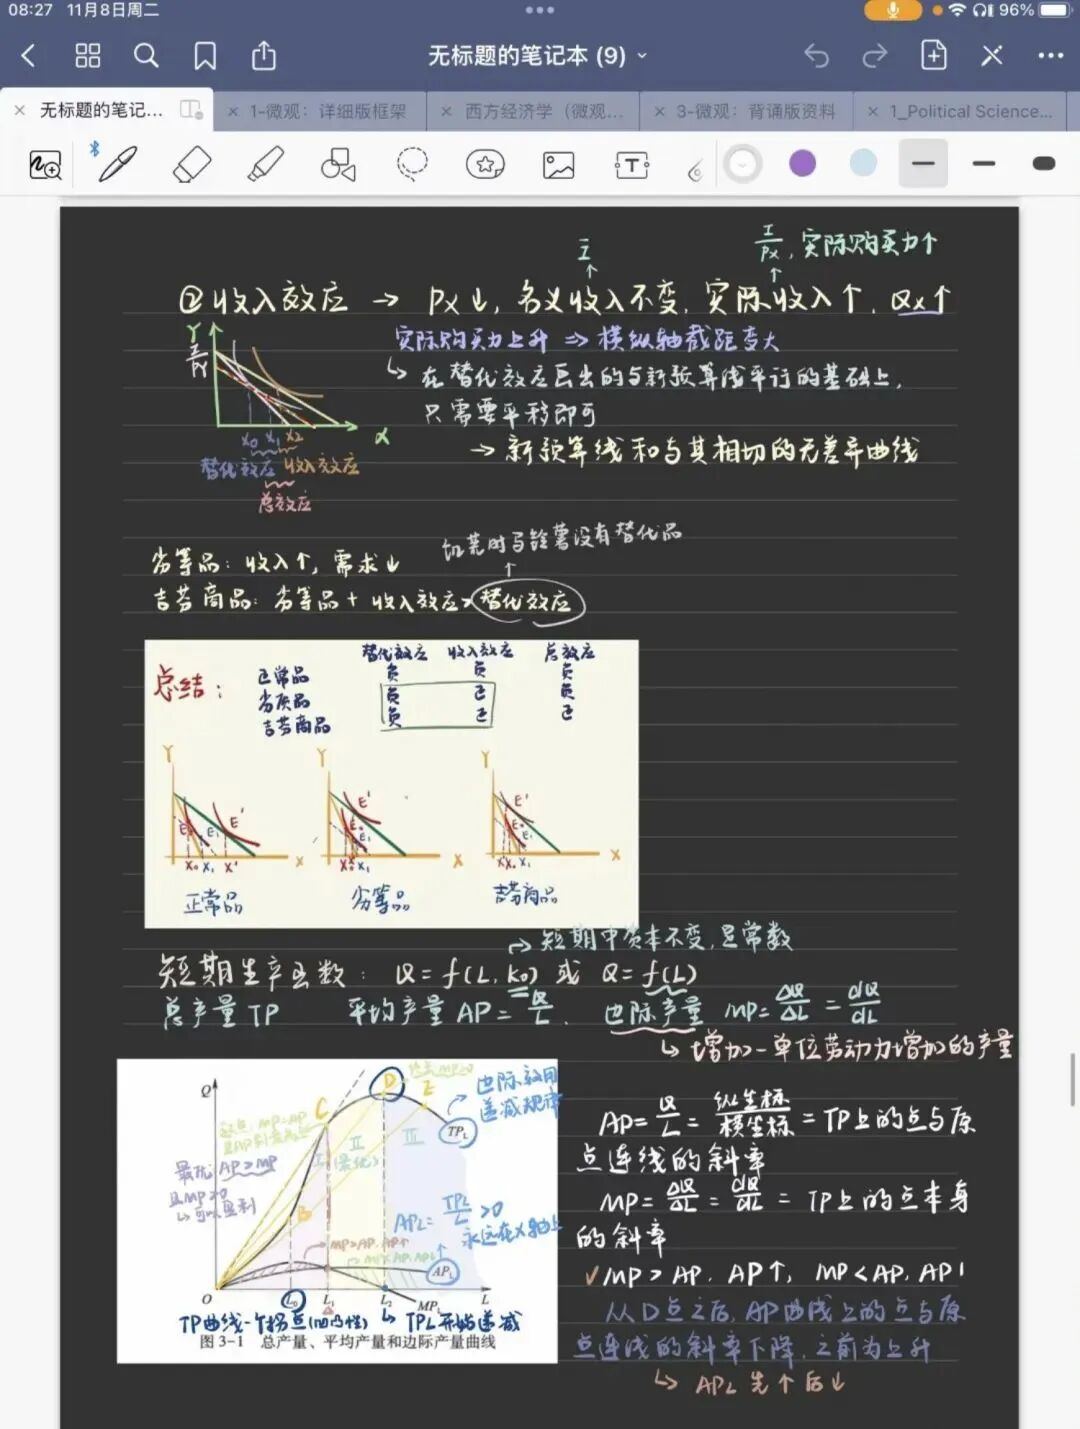 08:27 11月8日周二
96%
无标题的笔记本 (9)
无标题的笔记...
1-微观：详细版框架
西方经济学（微观...
3-微观：背诵版资料
1_Political Science...
I/Px，实际购买力↑
I
②收入效应 → Px↓，名义收入不变，实际收入↑，Qx↑
实际购买力上升 ⇒ 横纵轴截距变大
在替代效应画出的与新预算线平行的基础上，
只需要平移即可
→ 新预算线和与其相切的无差异曲线
Y
I/Py
X0 X1 X2
替代效应 收入效应
总效应
饥荒时马铃薯没有替代品
劣等品：收入↑，需求↓
吉芬商品：劣等品 + 收入效应>替代效应
替代效应 收入效应 总效应
总结：
正常品 负 负 负
劣质品 负 正 负
吉芬商品 负 正 正
Y Y Y
E' E' E'
X X X
正常品 劣等品 吉芬商品
短期中资本不变，是常数
短期生产函数：Q=f(L, K0) 或 Q=f(L)
总产量 TP 平均产量 AP=Q/L. 边际产量 MP=ΔQ/ΔL=dQ/dL
增加一单位劳动力增加的产量
Q
C D E
边际效用
递减规律
TPL
最优 AP>MP
且MP>0
I II III
B
APL=TPL/L>0
永远在X轴上
APL
O L0 L1 L2 MPL L
TP曲线一个拐点(凹凸性) TPL开始递减
图 3-1 总产量、平均产量和边际产量曲线
AP=Q/L=纵坐标/横坐标=TP上的点与原
点连线的斜率
MP=ΔQ/ΔL=dQ/dL=TP上的点本身
的斜率
✓MP>AP，AP↑，MP<AP，AP↓
从D点之后，AP曲线上的点与原
点连线的斜率下降，之前为上升
APL先↑后↓